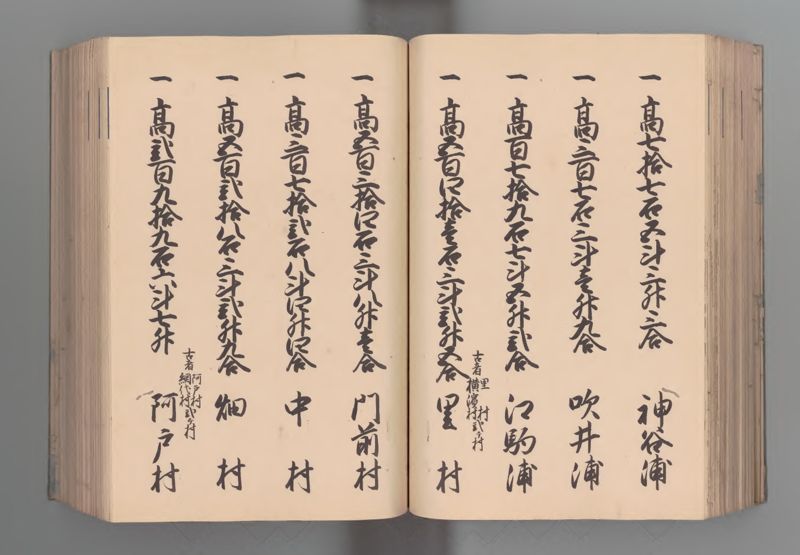 一高七拾七石五斗三升三合 神谷浦
一高三百七石三斗壱升九合 吹井浦
一高百七拾九石七斗五升弐合 江駒浦
一高五百四拾壱石三斗弐升五合 里村
古者 里村 横濱村 弐ケ村
一高五百三拾四石三斗八升壱合 門前村
一高三百七拾弐石八斗四升四合 中村
一高五百弐拾八石三斗弐升九合 畑村
一高弐百九拾九石六斗七升 阿戸村
古者 阿戸村 網代村 弐ケ村